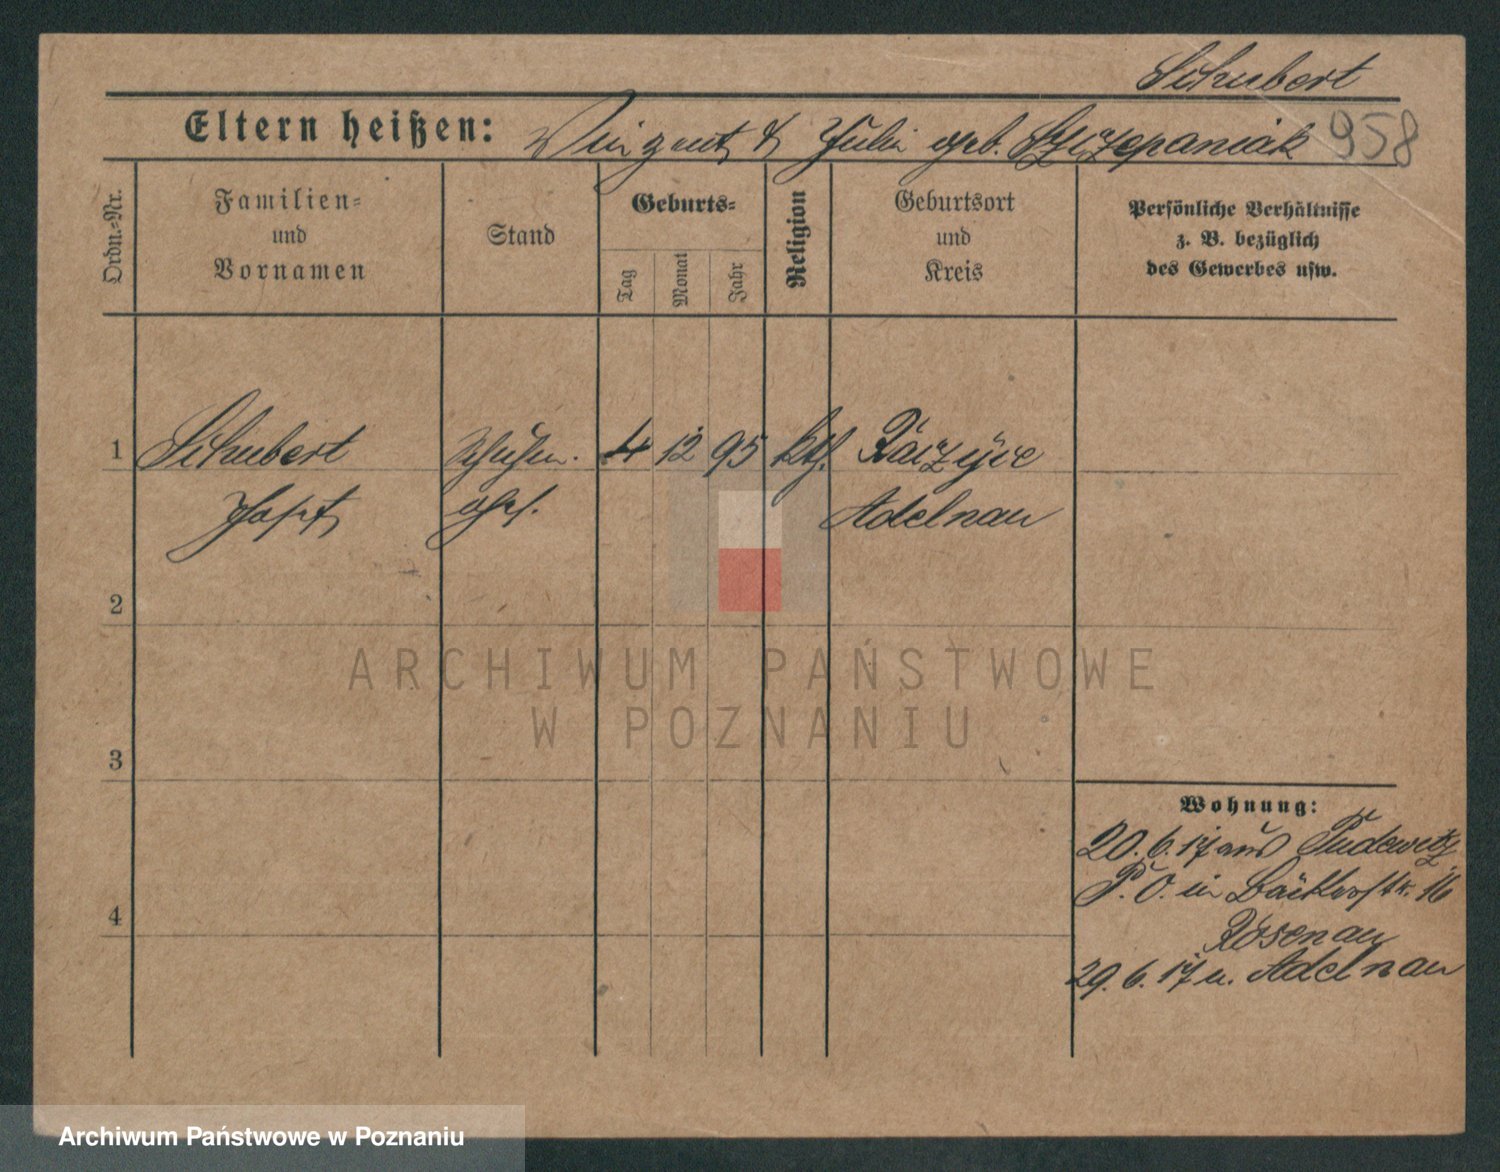 Schubert
Eltern heißen: Vinzent & Julie geb. Szczepaniak 958
Ordn.-Nr.
Familien-
und
Vornamen
Stand
Geburts-
Tag
Monat
Jahr
Religion
Geburtsort
und
Kreis
Persönliche Verhältnisse
z. B. bezüglich
des Gewerbes usw.
1 Schubert 4 12 95 kth. Raczyce
Josef Adelnau
2
3
4
Wohnung:
20.6.17 aus Pudewitz
P. O. in Bäckerstr. 16
Rosenau
29.6.17 n. Adelnau
ARCHIWUM PAŃSTWOWE
W POZNANIU
Archiwum Państwowe w Poznaniu